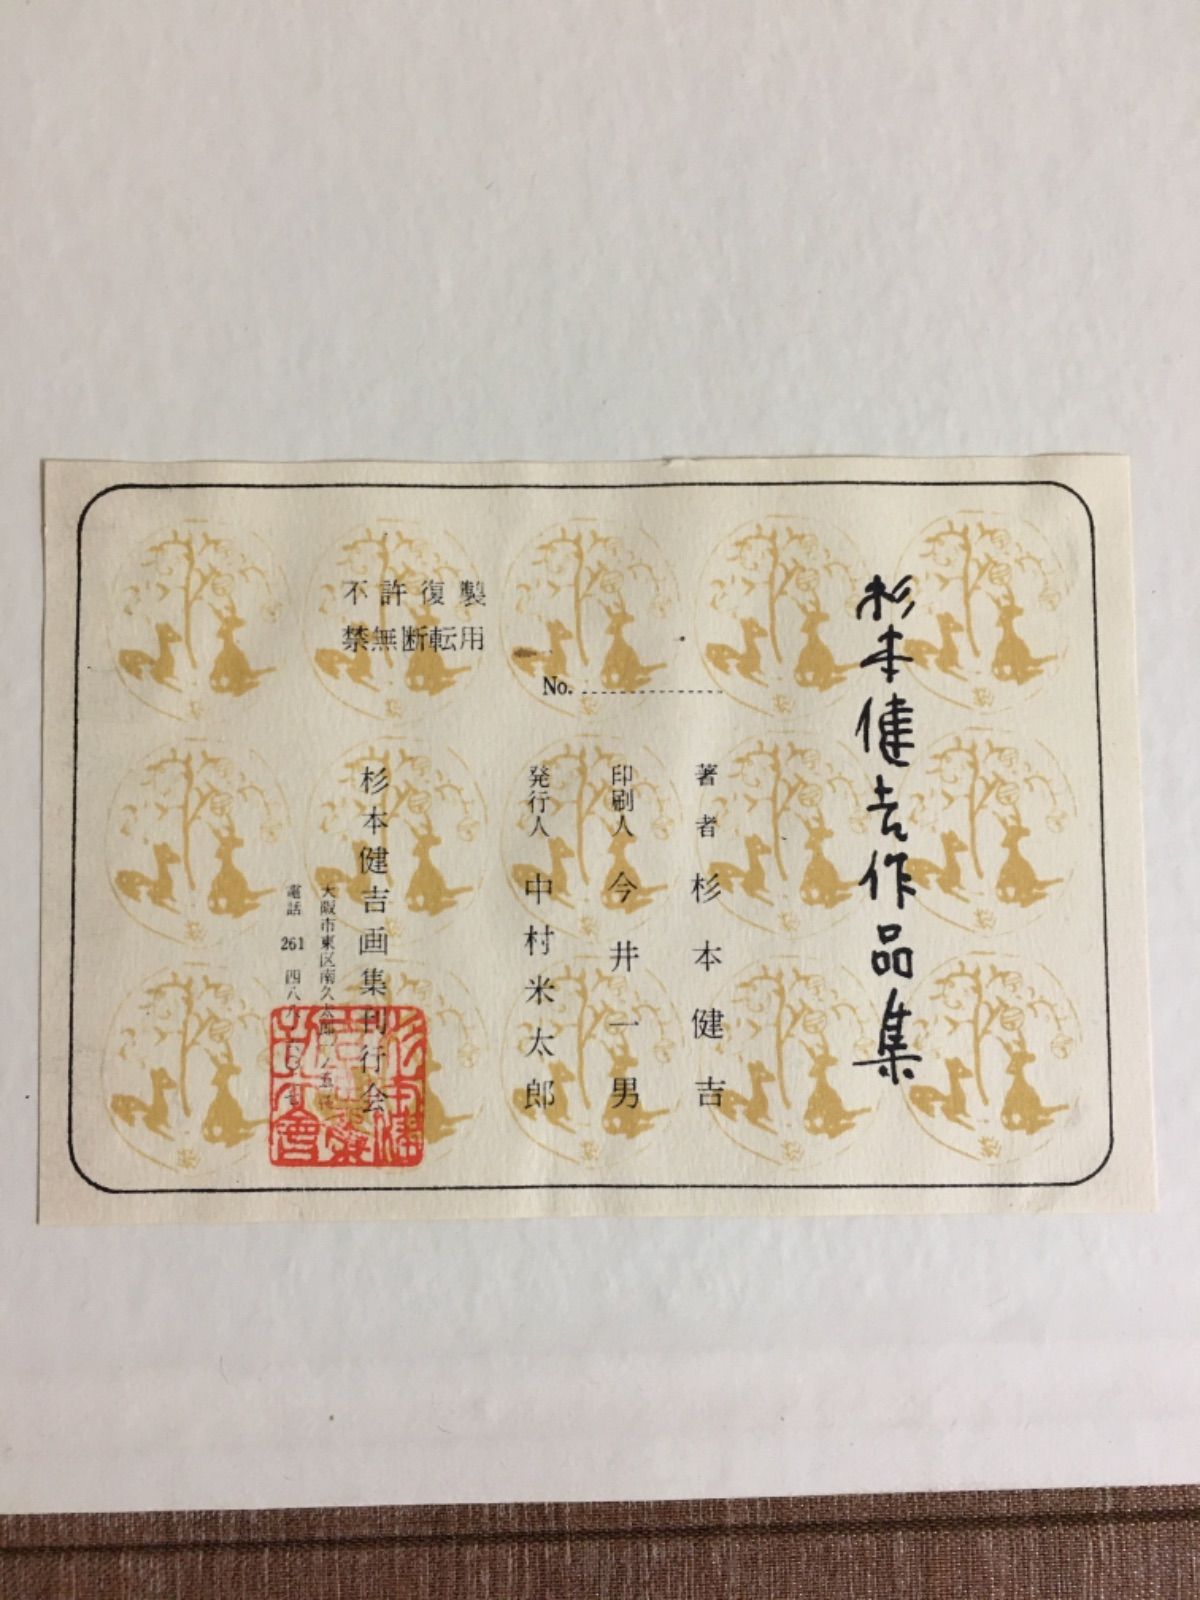 杉本健吉作品集
著者 杉本健吉
印刷人 今井一男
発行人 中村米太郎
No.
不許復製
禁無断転用
杉本健吉画集刊行会
大阪市東区南久太郎
電話 261 四八